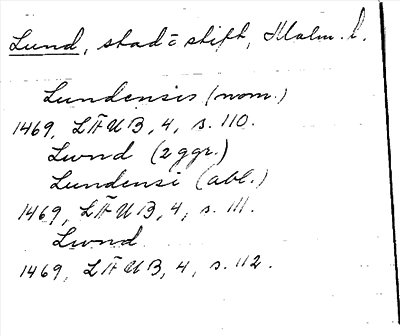 Lund, stad o stift, Malm. l.
Lundensis (nom.)
1469, LÄUB, 4, s. 110.
Lwnd (2 ggr.)
Lundensi (abl.)
1469, LÄUB, 4, s. 111.
Lwnd
1469, LÄUB, 4, s. 112.